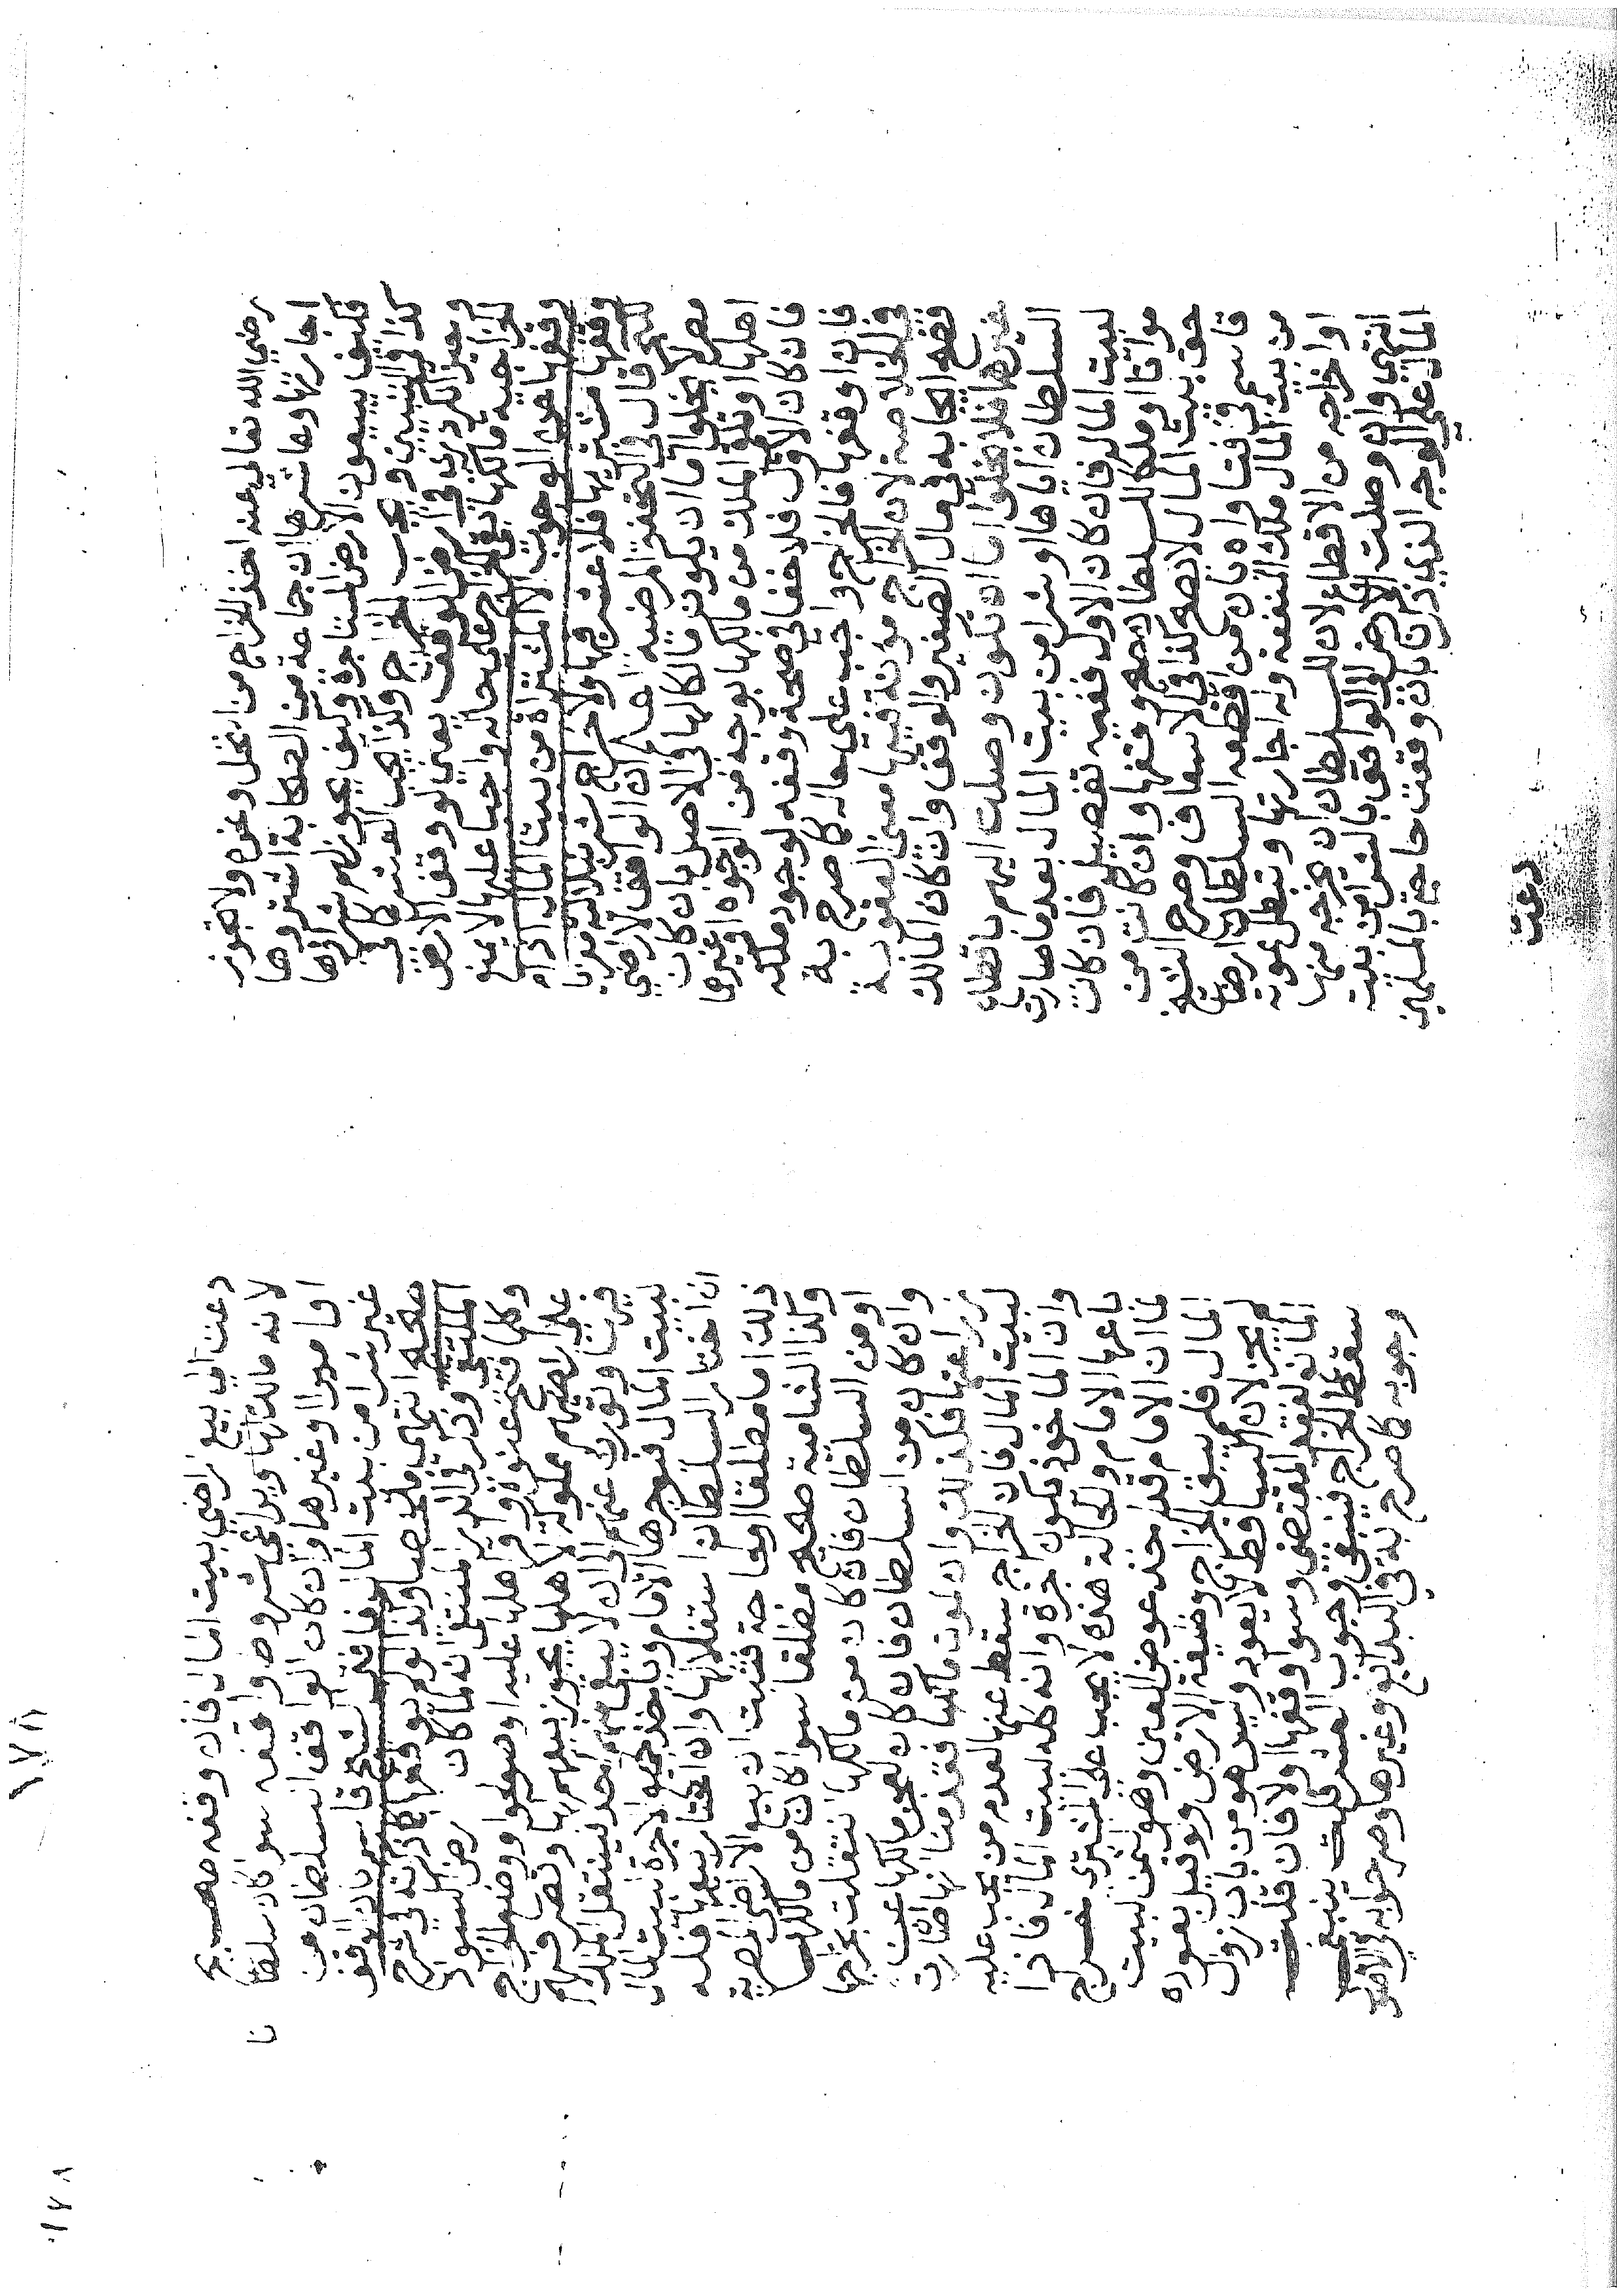 رضي الله تعالى عنه اخذ الخراج من نخل ونحوه ولا يجوز
اجارتها وعاشرها ان جماعة من الصحابة اشتروها
فكيف يبيعون الارض المستاجرة وكيف يجوز لهم شراؤها
كذا في التبيين ويجب الخراج وكذا يجب العشر كما في
وعبر الكردري في ارض الوقف يعني لو وقف الارض
الخراجية مالكها يبقى الخراج على حاله واجبا عليها لا يمنع
وقفها عن الوجوب الا المشتراة من بيت المال اذا
وقفها مشتريها فلا عشر فيها ولا خراج شرنبلالية معزيا
قال في التحفة المرضية اعلم ان الواقف لارض
مصر لا يخلوا اما ان يكون مالكا لها في الاصل بان كان
اهلها او تلقى الملك من مالكها بوجه من الوجوه او غيرها
فان كان الاول فلا خفا في صحة وقفه لوجود ملكه
فان اوقفها فالخراج واجب على حاله كما صرح به
في الخلاصة لان الخراج مونة فيها معنى العقوبة
فتصح ايجابه في مال الصغير والوقف وان كان المالك
غيرها فلا يخلوا اما ان تكون وصلت اليهم باقطاع
السلطان اياها او شرا من بيت المال بعد ما صارت
لبيت المال فان كان الاول ففيه تفصيل فان كانت
مواتا او ملكا للسلطان صح وقفها وان كانت من
حق بيت المال لا يصح كذا في الاسعاف وصرح الشيخ
قاسم في فتاواه بان من اقطعه السلطان ارضا
من بيت المال ملك المنفعة وله اجارتها وتبطل بموته
او اخراجه من الاقطاع لان للسلطان ان يخرجه منها
انتهى وان وصلت الارض الى الواقف بالشرا من بيت
المال على الوجه الذي ذكرنا بان وقعت حاجة بالمسلمين
دعت
دعت الى بيع اراضي بيت المال فان وقفه صحيح
لانه مالكها ويراعى شروط واقفه سوا كان سلطانا
او اميرا او غيرهما وان كان الواقف السلطان من
غير شرا من بيت المال فافتى الشيخ قاسم بان الوقف
صحيح انتهى ملخصا وكذا لو لم يوقفها كما ذكرته في شرح
الملتقى وذكر في الدر المنتقى انه ما كان رض السواد
وكلما فتح عنوة واقر اهلها عليه او صولحوا ووضع الخراج
على اراضيهم مملوكة لاهلها يجوز بيعهم لها وتصرفهم
فيها وتورث عنهم الى ان لا يبقى منهم احد فينتقل الملك
لبيت المال فيوجرها الامام وياخذ جميع الاجرة لبيت المال
ان اختار السلطان استغلالها وان اختار بيعها فله
ذلك اما مطلقا او لحاجة فثبت ان بيع الاراضي المصرية
وكذا الشامية صحيح مطلقا سوا كان من مالكها
او من السلطان فان كان من مالكها انتقلت بخراجها
وان كان من السلطان فان كان لعجز مالكها عن
زراعتها فكذلك وان لموت مالكها فقدمنا انها صارت
لبيت المال فان الخراج سقط عنها لعدم من يجب عليه
وان الماخوذ يكون اجرة وانه كله لبيت المال فاذا
باعها الامام والحالة هذه لا يجب على المشتري خراج
لما ان الامام قد اخذ عوض العين وهو الثمن لبيت
المال فلم يبق الخراج وظيفة الارض ولو قيل بعوده
لم يجز لان الساقط لا يعود وليس هو من باب زوال
المانع لفقد المقتضى وسوا وقفها اولا فان قلت
سقط الخراج فينبغي وجوب العشر قلت ينبغي
وجوبه كما صرح به في البدايع وغيرها وصرحوا به في الاصول
١٧٨
١٧٨